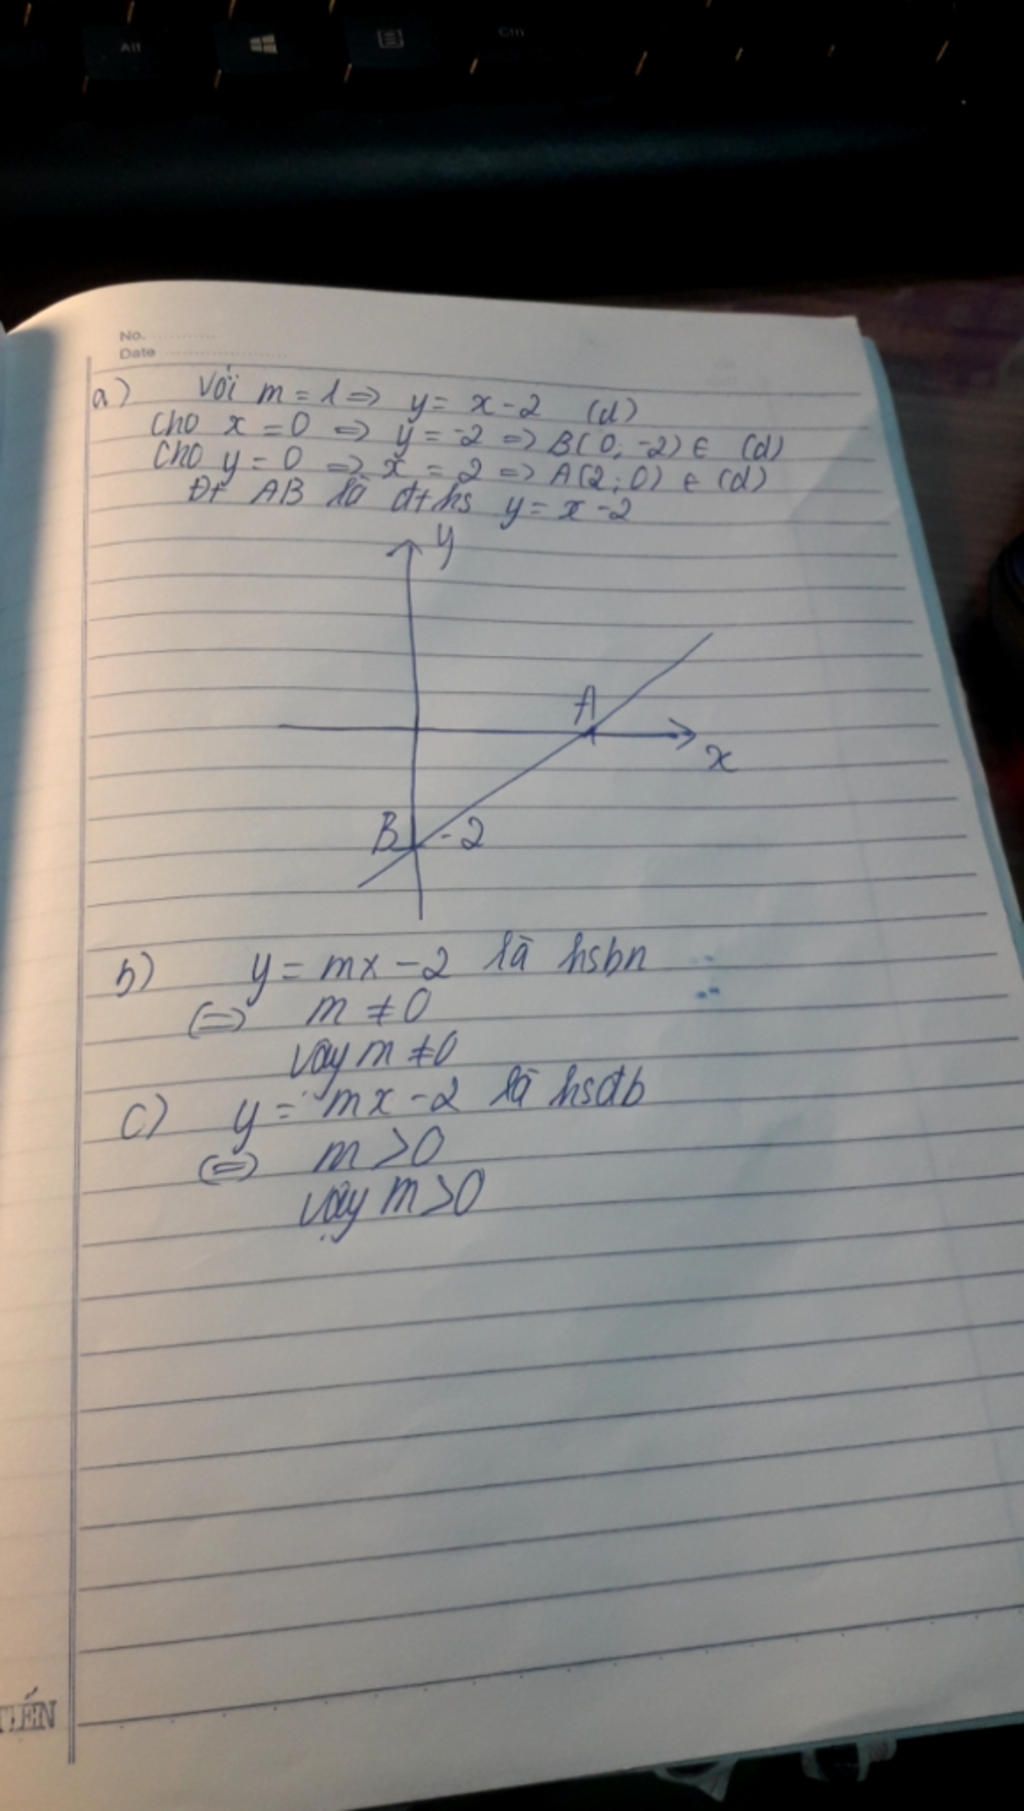 Alt
Ctrl
No. ............
Date ......................
a) Với m = 1 => y = x - 2 (d)
Cho x = 0 => y = -2 => B(0; -2) ∈ (d)
Cho y = 0 => x = 2 => A(2; 0) ∈ (d)
Đt AB là đths y = x - 2
y
A
x
B -2
b) y = mx - 2 là hsbn
<=> m ≠ 0
vậy m ≠ 0
c) y = mx - 2 là hsđb
<=> m > 0
vậy m > 0
TIẾN